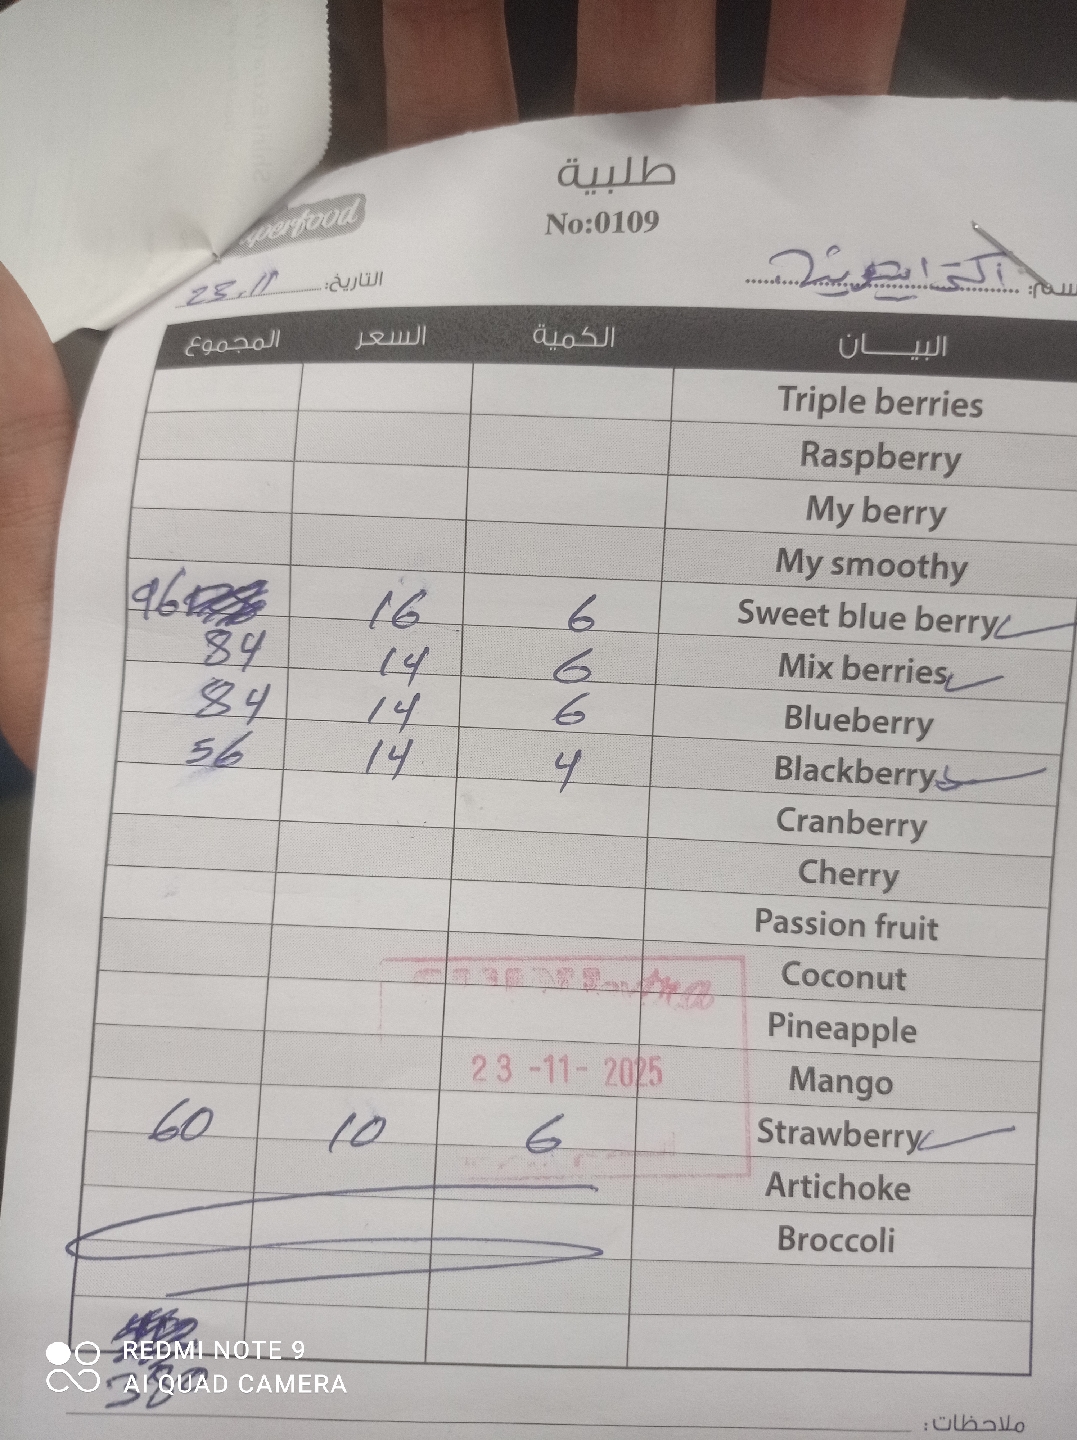 طلبية
No:0109
perfood
التاريخ: 23.11
البيـــــان الكمية السعر المجموع
Triple berries
Raspberry
My berry
My smoothy
Sweet blue berry 6 16 96
Mix berries 6 14 84
Blueberry 6 14 84
Blackberry 4 14 56
Cranberry
Cherry
Passion fruit
Coconut
Pineapple
23-11-2025
Mango
Strawberry 6 10 60
Artichoke
Broccoli
380
ملاحظات:
REDMI NOTE 9
AI QUAD CAMERA